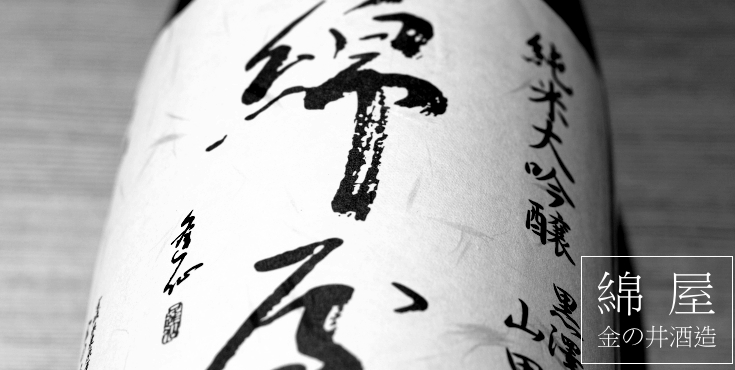 綿屋
純米大吟醸
黒澤
山田
綿屋
金の井酒造